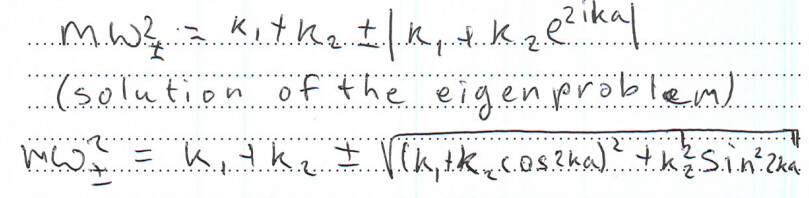 mω²± = k₁ + k₂ ± |k₁ + k₂e²ⁱᵏᵃ|
(solution of the eigenproblem)
mω²± = k₁ + k₂ ± √(k₁ + k₂ cos 2ka)² + k₂² sin² 2ka